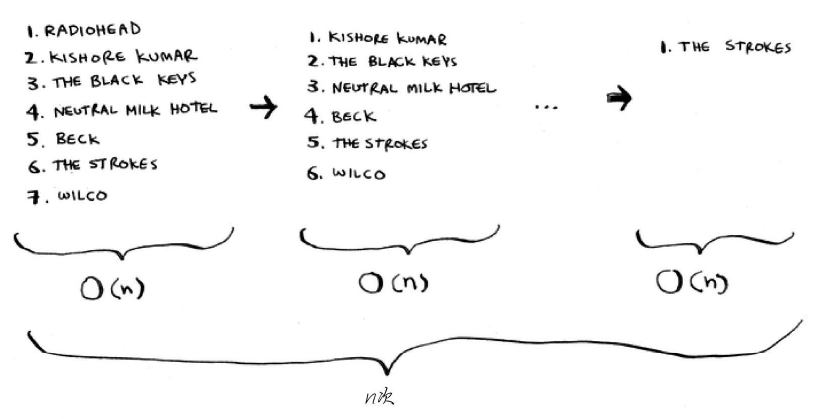 1. RADIOHEAD
2. KISHORE KUMAR
3. THE BLACK KEYS
4. NEUTRAL MILK HOTEL
5. BECK
6. THE STROKES
7. WILCO
→
1. KISHORE KUMAR
2. THE BLACK KEYS
3. NEUTRAL MILK HOTEL
4. BECK
5. THE STROKES
6. WILCO
...
→
1. THE STROKES
O(n)
O(n)
O(n)